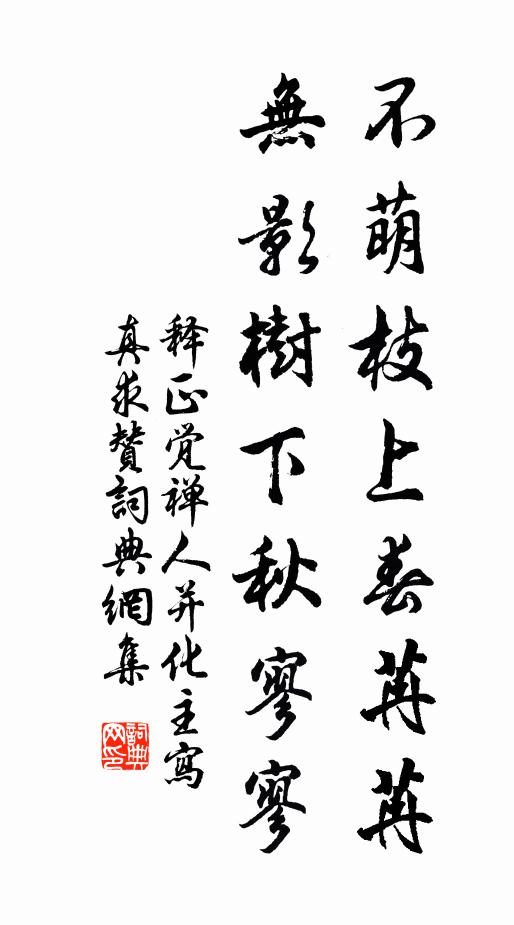 不萌枝上春苒苒
無影樹下秋寥寥
释正觉禅人并化主寫
真求贊詞典網集
詞典网印